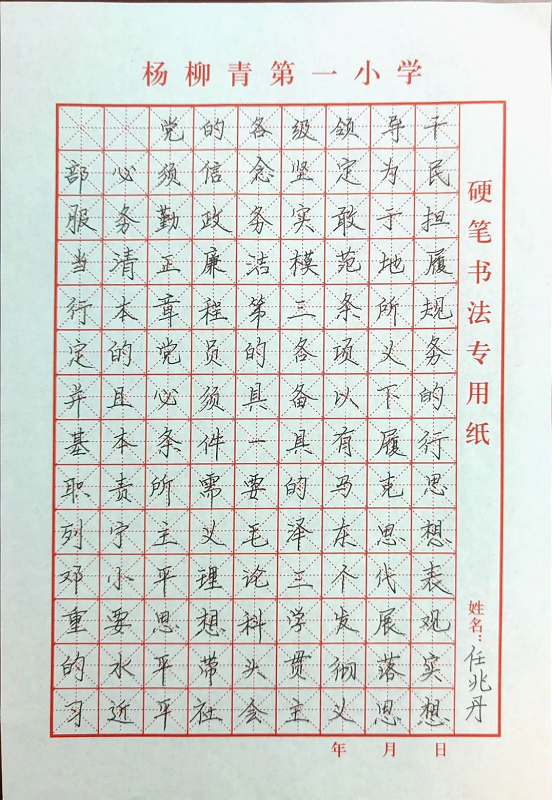 杨柳青第一小学
党的各级领导干
部必须信念坚定为民
服务勤政务实敢于担
当清正廉洁模范地履
行本章程第三条所规
定的党员的各项义务
并且必须具备以下的
基本条件一具有履行
职责所需要的马克思
列宁主义毛泽东思想
邓小平理论三个代表
重要思想科学发展观
的水平带头贯彻落实
习近平社会主义思想
硬笔书法专用纸
姓名：任兆丹
年 月 日